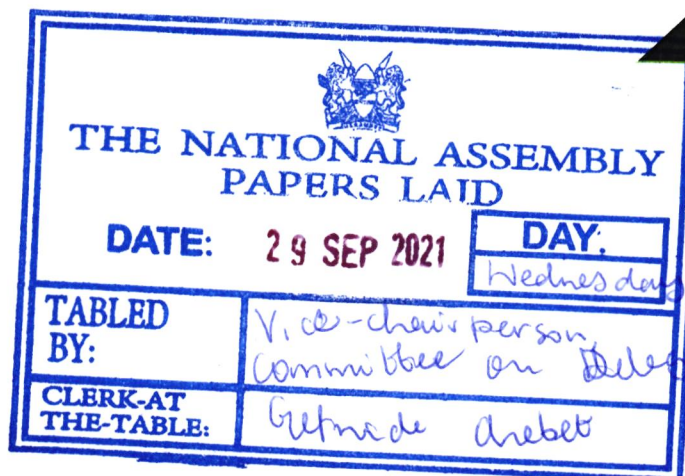 THE NATIONAL ASSEMBLY
PAPERS LAID
DATE: 29 SEP 2021 DAY:
Wednesday
TABLED BY: Vice-chairperson,
committee on
CLERK-AT THE-TABLE: Chebet